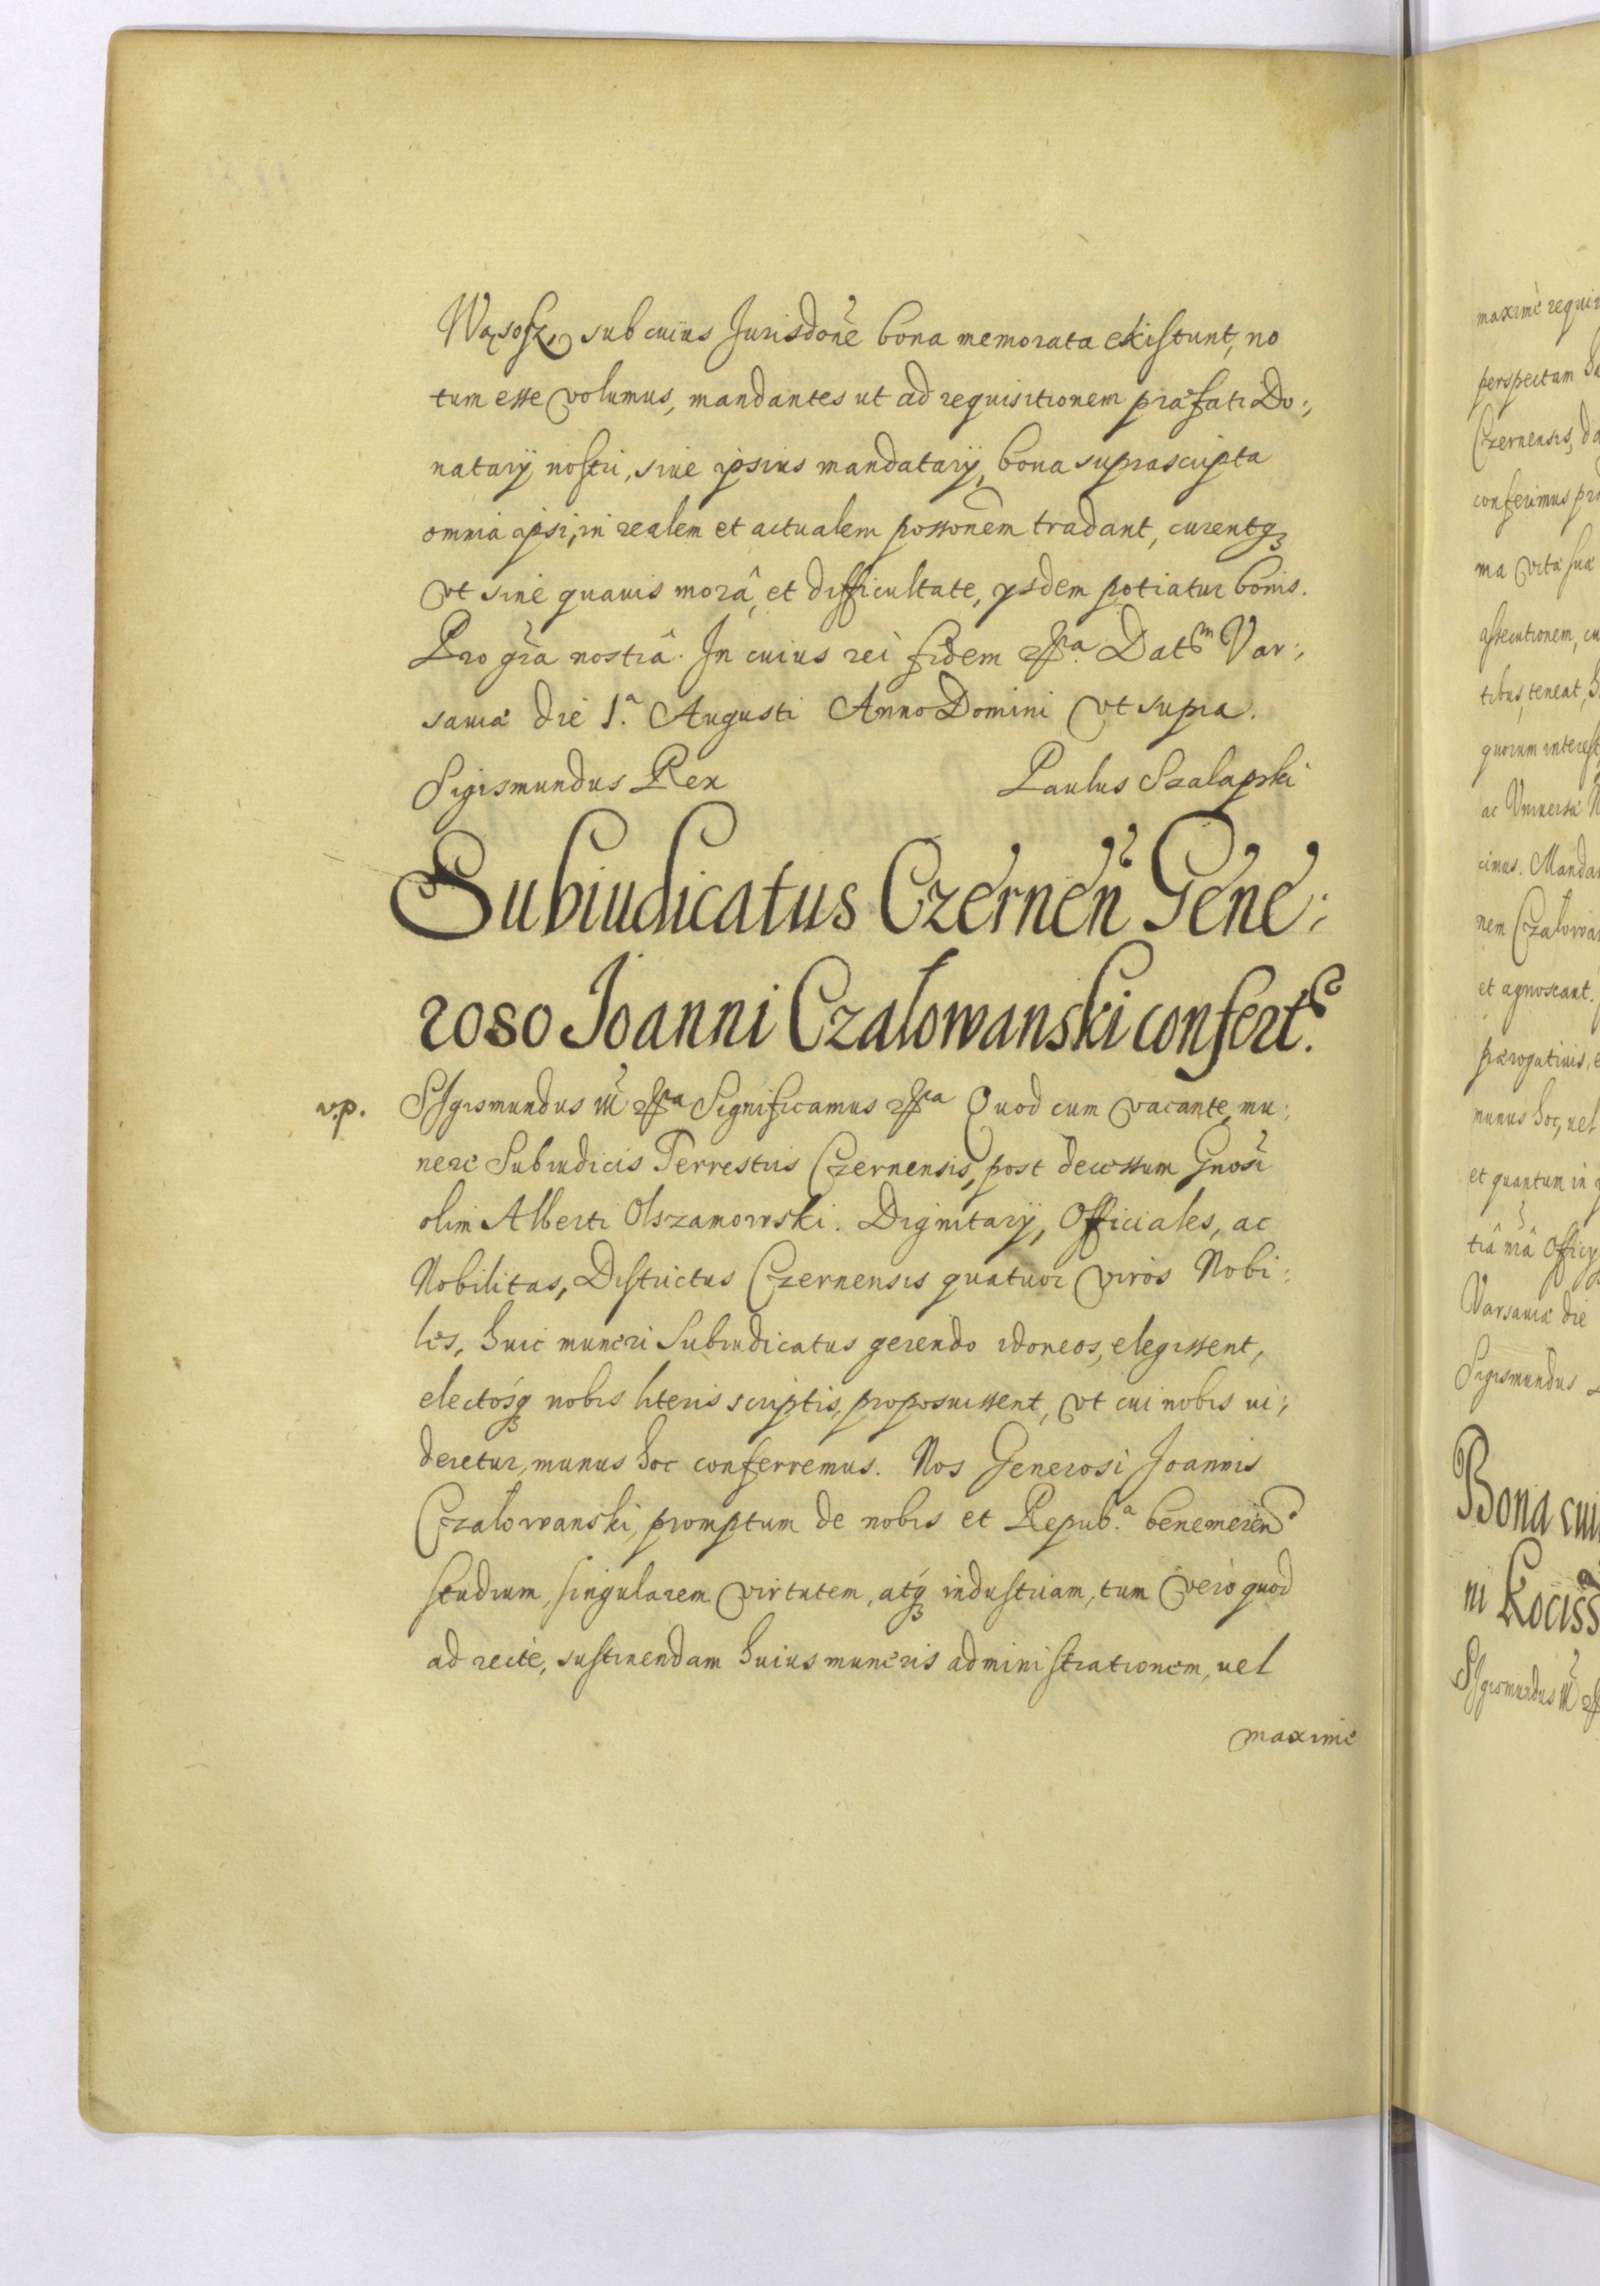 Wąsosz, sub cuius Jurisdone bona memorata existunt, no
tum esse volumus, mandantes ut ad requisitionem præfati Do:,
natarÿ nostri, siue ipsius mandatarÿ, bona suprascripta
omnia ipsi, in realem et actualem possonem tradant, curentq3
vt sine quauis morâ, et difficultate, ysdem potiatur bonis.
Pro gra nostrâ. In cuius rei fidem Datm Var:,
sauiæ die 1.a Augusti Anno Domini vt supra.
Sigismundus Rex Paulus Szalapski
Subiudicatus Czernen Gene:
roso Joanni Czalowanski confert.
v.p. SIgismundus III Significamus Quod cum vacante, mu:
nere Subiudicis Terrestris Czernensis, post decessum Gnosi
olim Alberti Olszamowski. Dignitarÿ, Officiales, ac
Nobilitas, Districtus Czernensis quatuor viros Nobi:
les, huic muneri Subiudicatus gerendo idoneos, elegissent,
electosq3 nobis literis scriptis, proposuissent, vt cui nobis ui:,
deretur, munus hoc conferremus. Nos Generosi Joannis
Czalowanski, promptum de nobis et Repub.a benemeren
studium, singularem virtutem, atq3 industriam, tum verò quod
ad recte, sustinendam huius muneris administrationem, uel
maxime
maximè requir
perspectum ha
Czernensis, da
conferimus pro
ma vitæ suæ
assecutionem, cu
tibus, teneat, h
quorum interest
ac Vniuersæ N
cimus. Manda
nem Czalowan
et agnoscant.
prærogatiuis, e
munus hoc, uel
et quantum in
tiâ nrâ Officy
Varsauiæ die
Sigismundus
Bona cui
ni Kociss
SIgismundus III